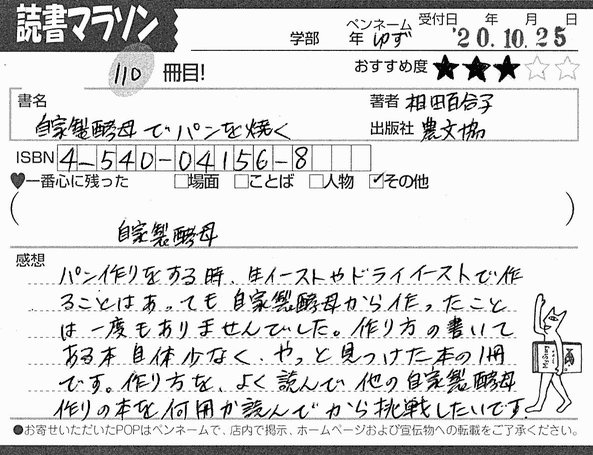 読書マラソン
学部 年 ペンネーム ゆず 受付日 年 月 日
'20.10.25
110 冊目!
おすすめ度 ★★★☆☆
書名 自家製酵母でパンを焼く
著者 相田百合子
出版社 農文協
ISBN 4-540-04156-8
♥一番心に残った □場面 □ことば □人物 ☑その他
( 自家製酵母 )
感想
パン作りをする時、生イーストやドライイーストで作
ることはあっても自家製酵母から作ったこと
は一度もありませんでした。作り方の書いて
ある本自体少なく、やっと見つけた本の1冊
です。作り方を、よく読んで他の自家製酵母
作りの本を何冊か読んでから挑戦したいです。
●お寄せいただいたPOPはペンネームで、店内で掲示、ホームページおよび宣伝物への転載をご了承ください。